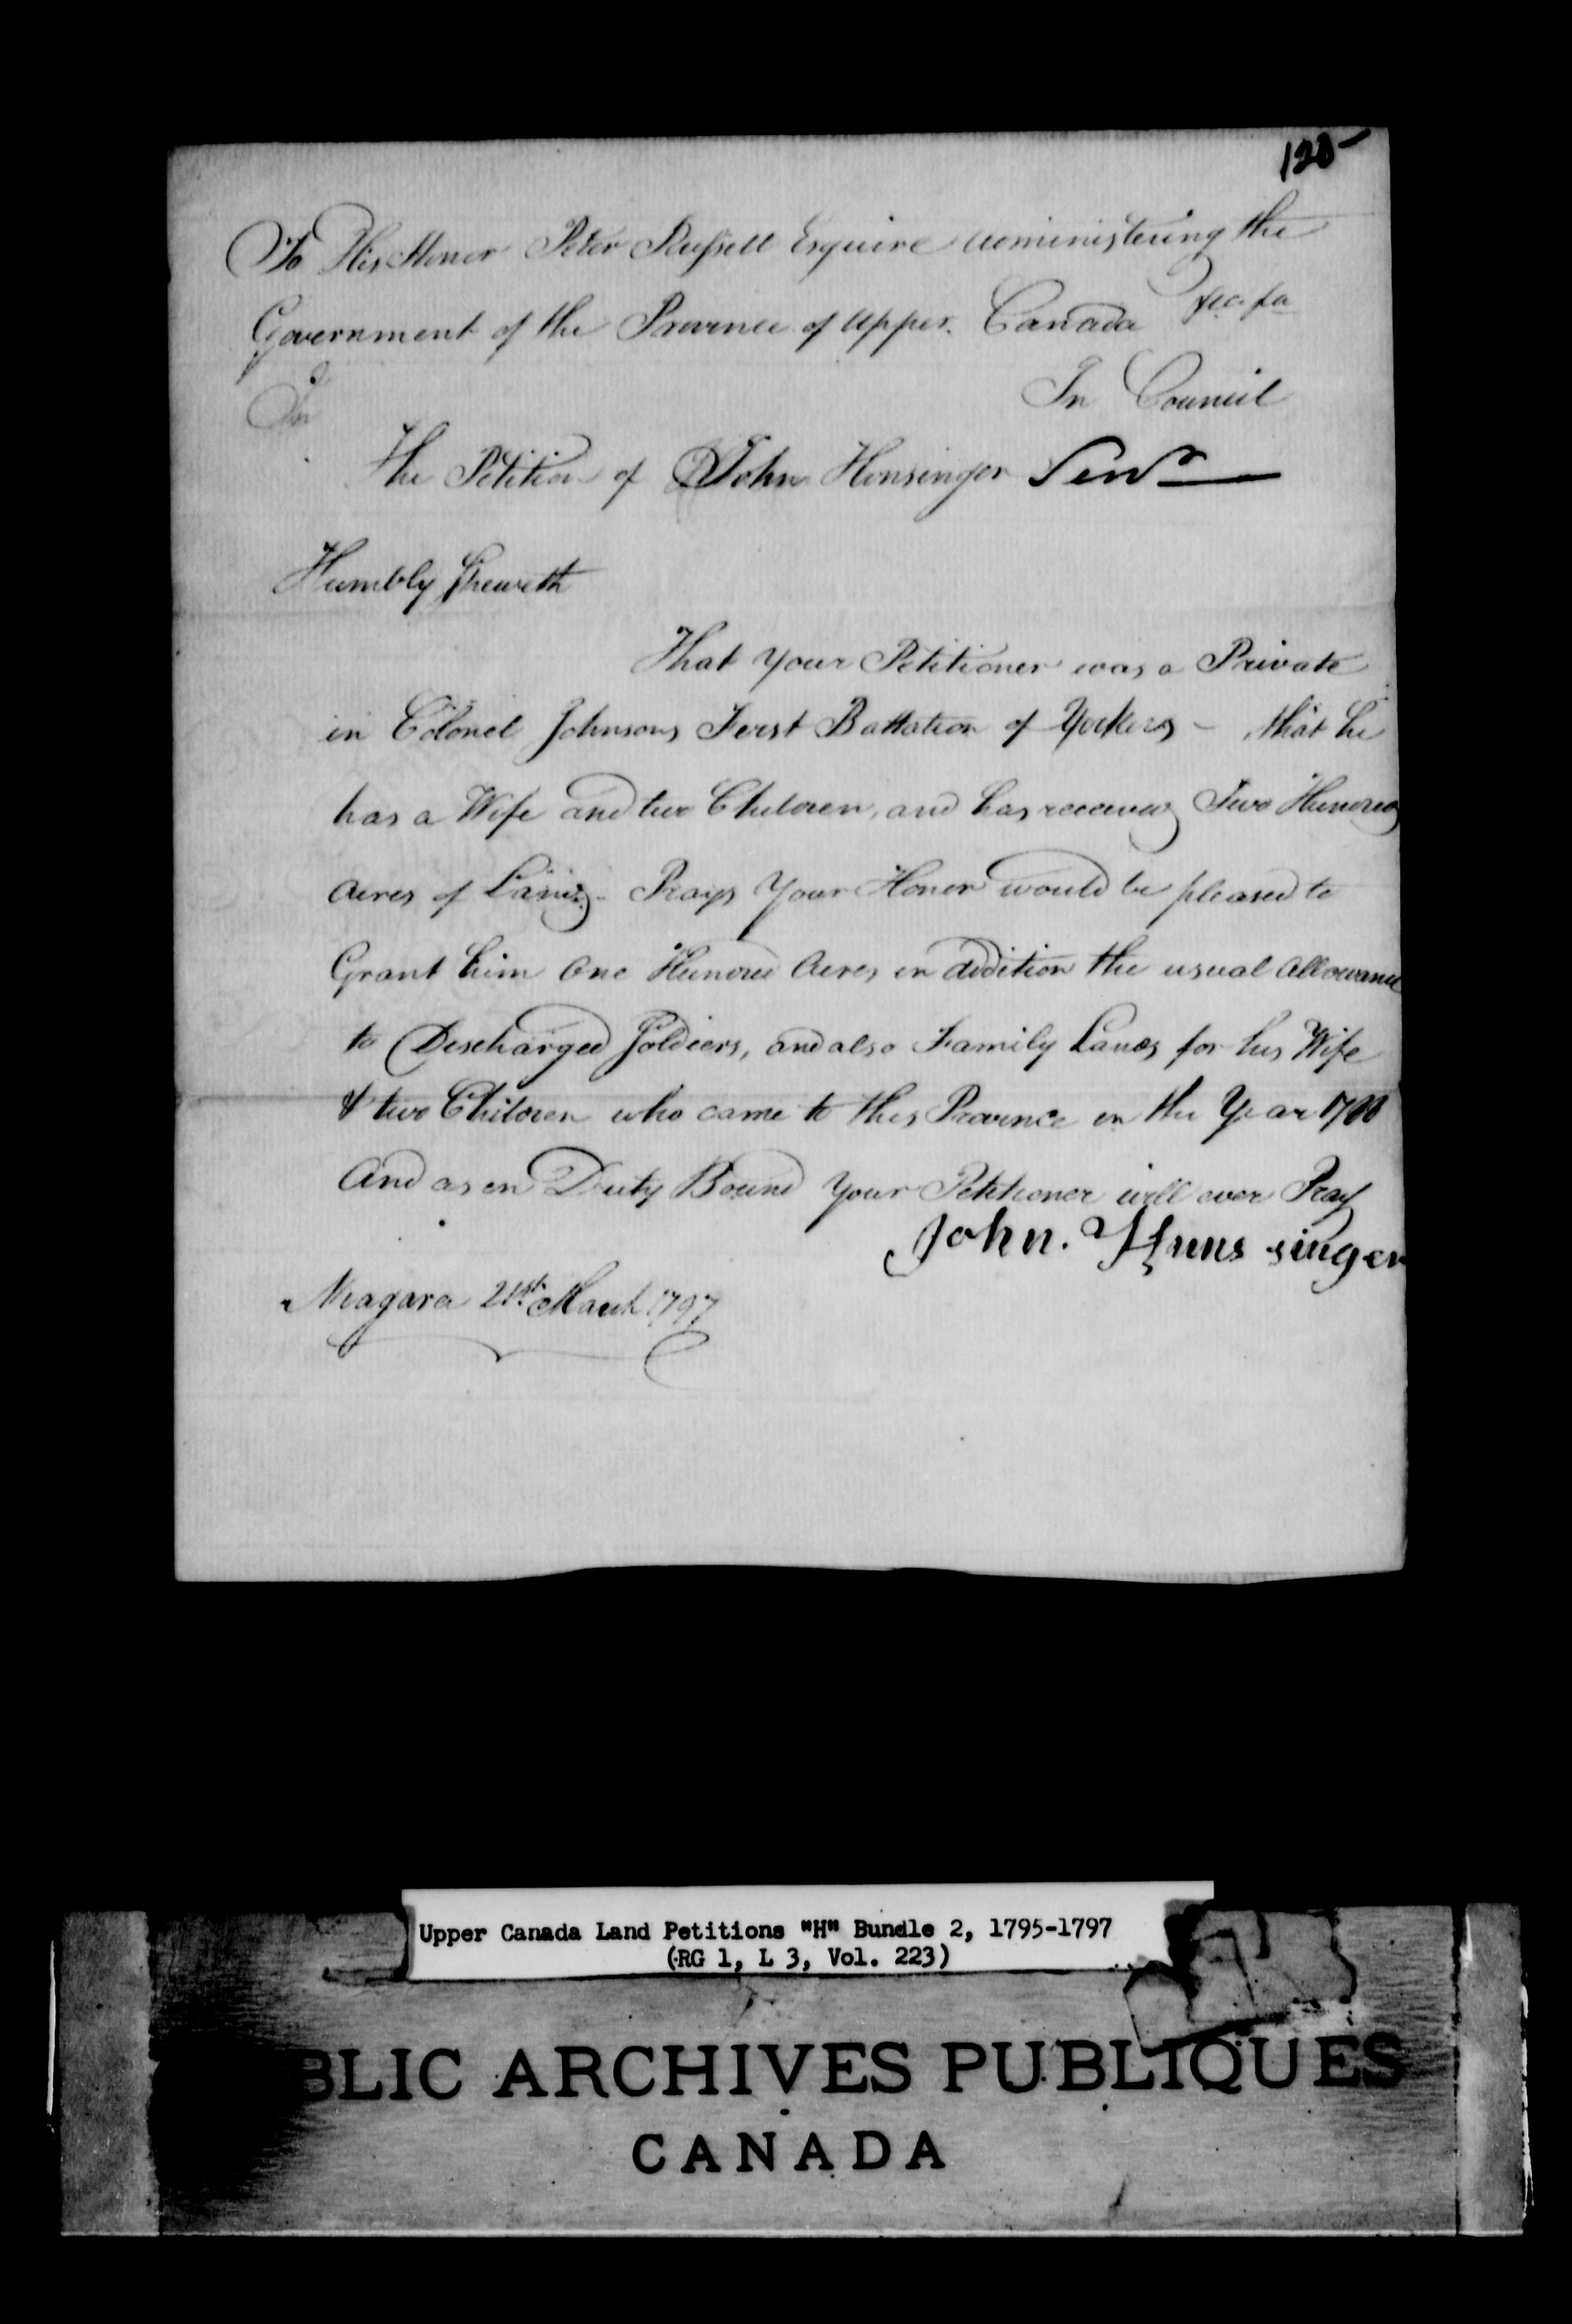 120
To His Honor Peter Russell Esquire administering the
Government of the Province of Upper Canada &c. &a
In
In Council
The Petition of John Honsinger Senr
Humbly Sheweth
That your Petitioner was a Private
in Colonel Johnsons First Battation of Yorkers - that he
has a Wife and two Children, and has received Two Hundred
Acres of Land - Prays Your Honor would be pleased to
Grant him One Hundred Acres in addition the usual Allowance
to Discharged Soldiers, and also Family Lands for his Wife
& two Children who came to this Province in the Year
And as in Duty Bound your Petitioner will ever Pray
John. Hunssinger
Niagara 21st March 1797
Upper Canada Land Petitions "H" Bundle 2, 1795-1797
(RG 1, L 3, Vol. 223)
BLIC ARCHIVES PUBLIQUES
CANADA